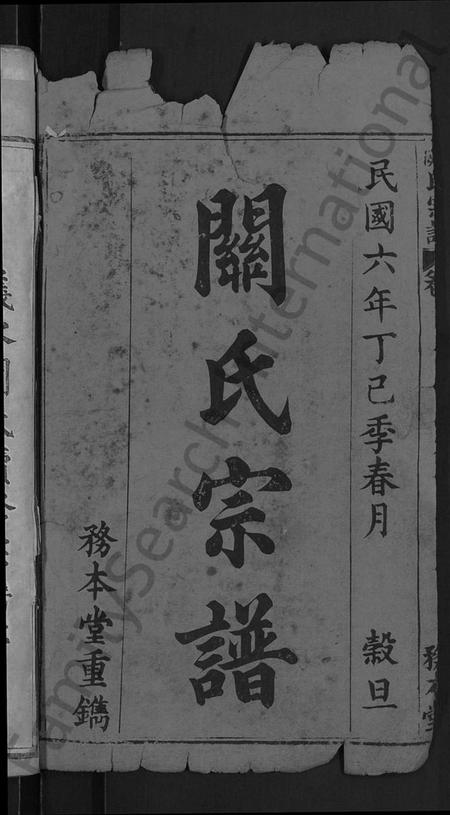 民國六年丁巳季春月 穀旦
關氏宗譜
務本堂重鐫
氏宗譜
卷
務本堂
FamilySearch International